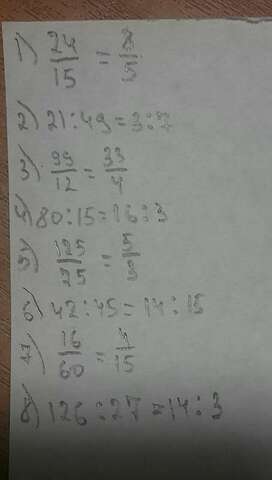 1) 24/15 = 8/5
2) 21:49=3:7
3) 99/12 = 33/4
4) 80:15=16:3
5) 125/25 = 5/5
6) 42:45=14:15
7) 16/60 = 4/15
8) 126:27=14:3